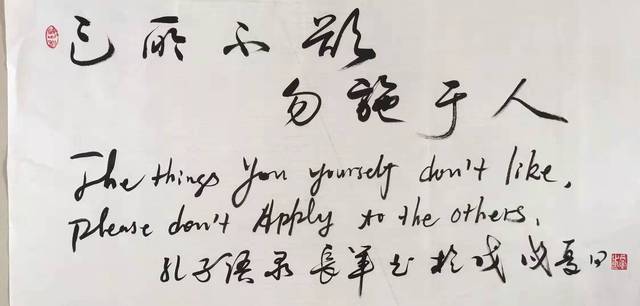 己所不欲
勿施于人
The things You yourself don't like,
Please don't Apply to the others.
孔子语录 長军书於戊戌夏日